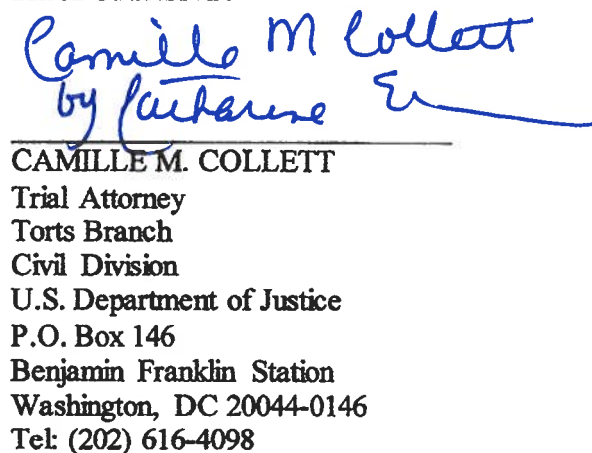 Camille M Collett
by Catharine E
CAMILLE M. COLLETT
Trial Attorney
Torts Branch
Civil Division
U.S. Department of Justice
P.O. Box 146
Benjamin Franklin Station
Washington, DC 20044-0146
Tel: (202) 616-4098